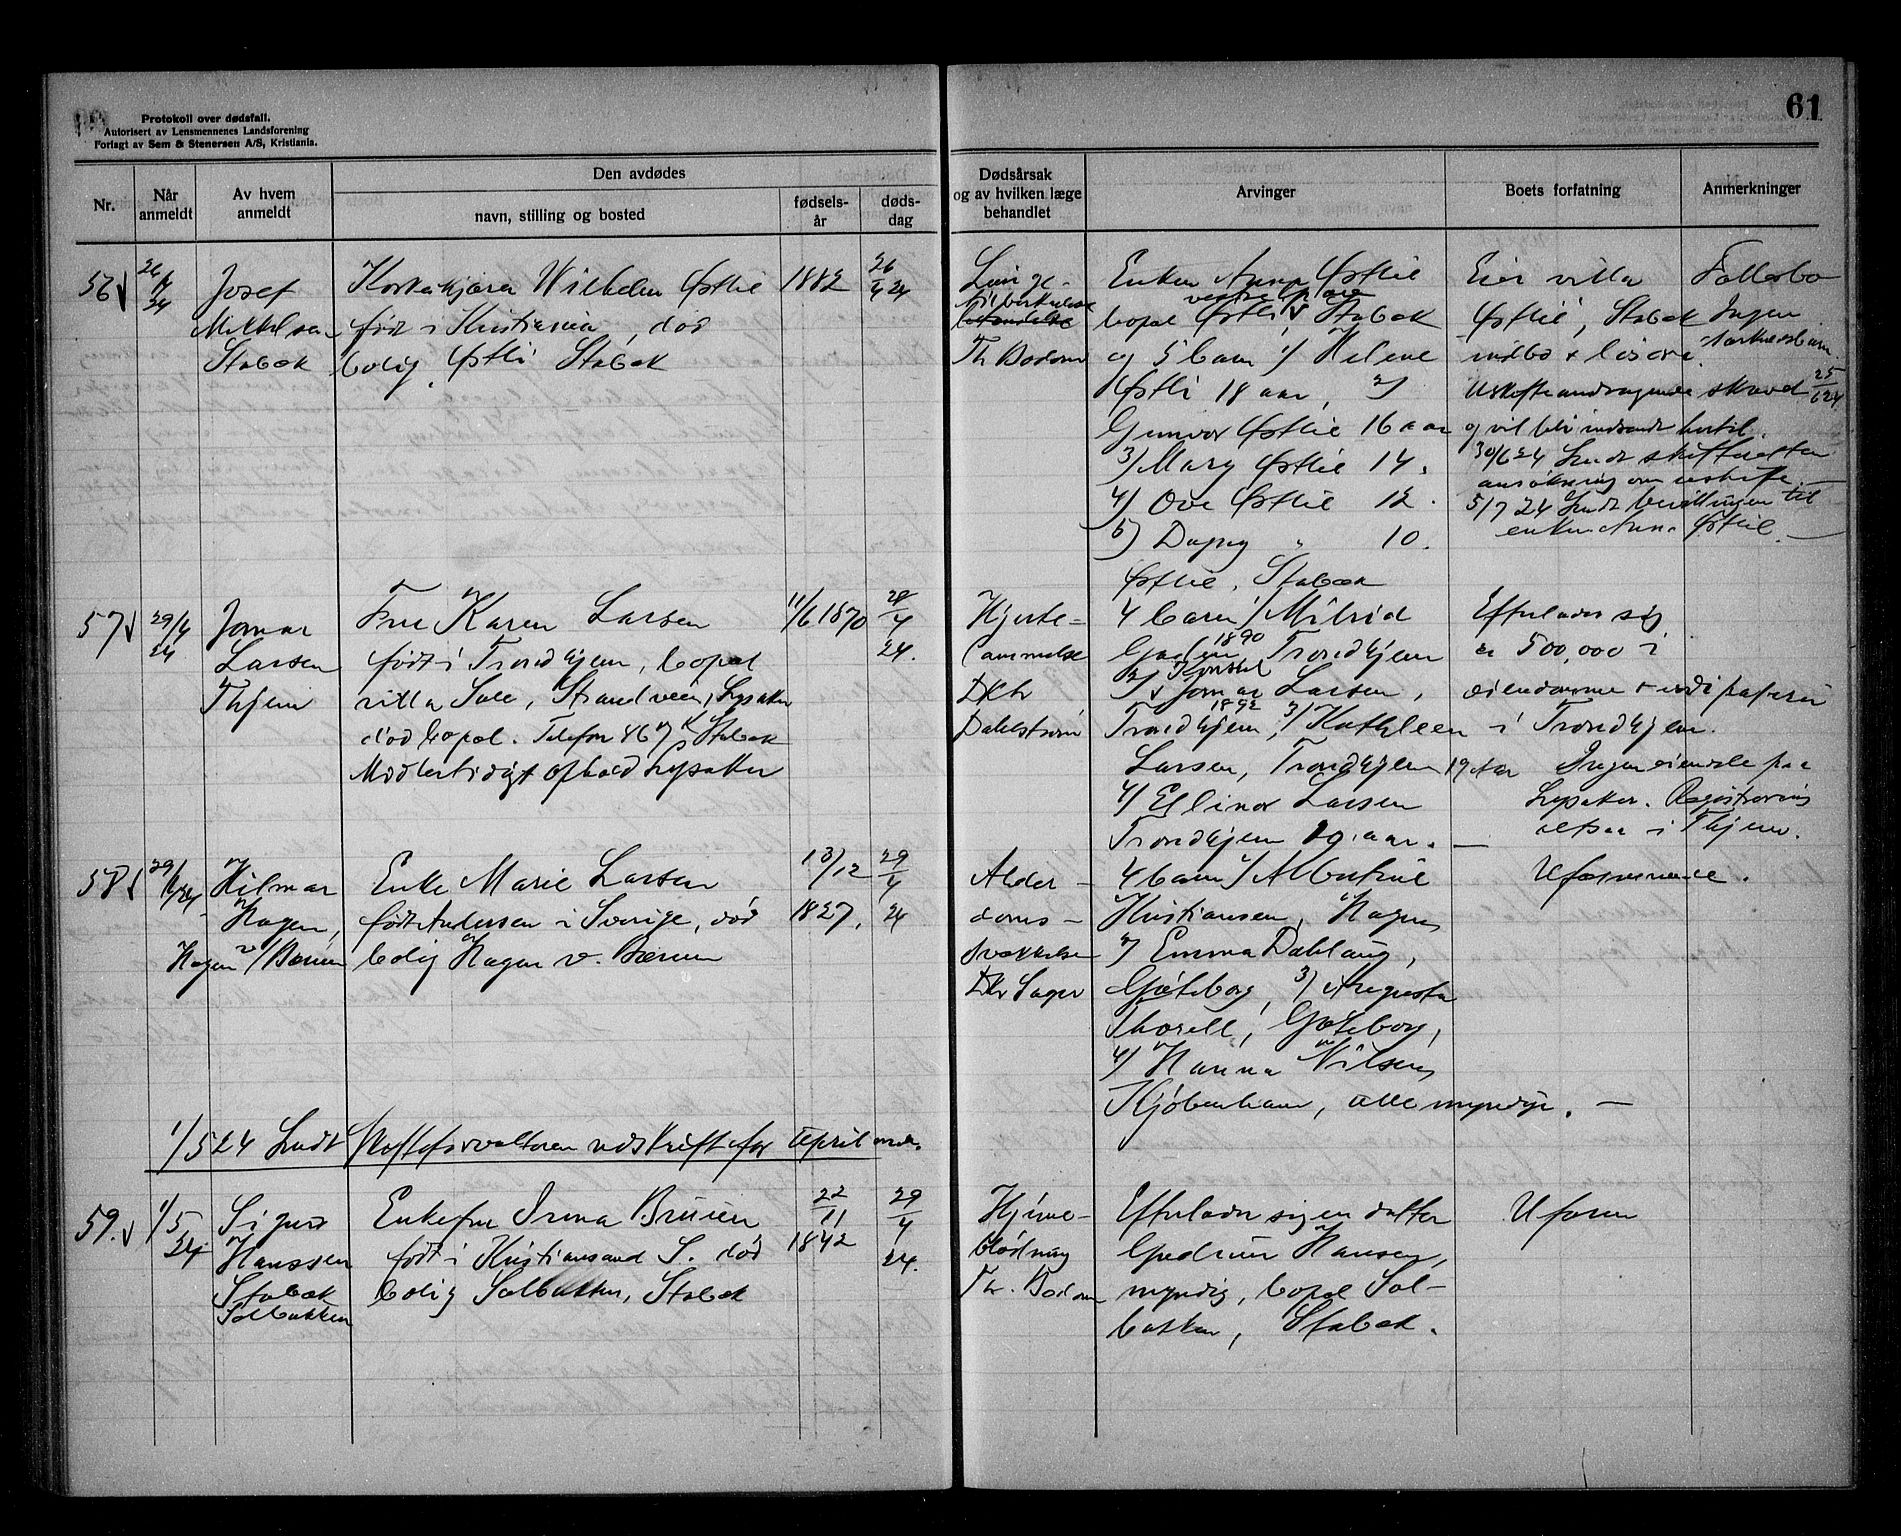 61
Protokoll over dødsfall.
Autorisert av Lensmennenes Landsforening
Forlagt av Sem & Stenersen A/S, Kristiania.
Nr.
Når anmeldt
Av hvem anmeldt
Den avdødes
navn, stilling og bosted
fødselsår
dødsdag
Dødsårsak og av hvilken læge behandlet
Arvinger
Boets forfatning
Anmerkninger
56
26/4 24
Josef
Mikkelsen
Stabæk
Wilhelm Østlie
født i Kristiania, død
bolig Østli Stabæk
1882
26/4 24
Lunge-
tuberkulose
Th Bodom
Enken Anna Østlie
bopæl Østli Stabæk
og 5 barn 1/ Helene
Østli 18 aar, 2/
Gunvor Østlie 16 aar
3/ Mary Østlie 14.
4) Ove Østlie 12.
5) Dagny " 10.
Østlie, Stabæk
Eier villa
Østli, Stabæk
indbo + løsøre
Uskifteandragende skrevet 25/6 24
og vil bli indsendt hertil.
30/6 24 Sendt skifteretten
ansøkning om uskifte.
5/7 24 Sendt bevillingen til
enken Anna Østlie.
Fællesbo
Ingen
særkuldsbarn.
57
29/4 24
Jomar
Larsen
Thjem
Frue Karen Larsen
født i Trondhjem, bopæl
villa Sole, Strandveien, Lysaker
død bopæl. Telefon 867 Stabæk
Midlertidigt ophold Lysaker
11/6 1870
28/4 24.
Hjerte-
lammelse
Dr
Dahlstrøm
4 barn 1/ Milrid
1890
Trondhjem
2/
Jomar Larsen,
1892
Trondhjem, 3/ Kathleen
Larsen, Trondhjem 19 aar
4/ Ellinor Larsen
Trondhjem 19 aar.
Efterlader sig
ca 500,000 i
eiendomme + verdipapirer
i Trondhjem.
Ingen eiendele paa
Lysaker. Registrering
altsaa i Thjem.
58
29/4 24
Hilmar
Hagen,
Hagen v/ Bærum
Enke Marie Larsen
født Andersen i Sverige, død
bolig Hagen v. Bærum
13/12
1827.
29/4
24
Alder-
doms-
svækkelse
Dr Sager
4 barn 1/ Albertine
Kristiansen, Hagen
2/ Emma Dahlaug,
Gøteborg, 3/ Augusta
Thorell, Gøteborg,
4/ Hanna Nilsen,
Kjøbenhavn, alle myndige.
Uformuende.
1/5 24 Sendt Skifteforvalteren utskrift for April mdr.
59.
1/5 24
Sigurd
Hanssen
Stabæk
Solbakken
Enkefru Irma Bruun
født i Kristiansand S. død
bolig Solbakken, Stabæk
22/11
1842
29/4
24.
Hjerne-
blødning
Th. Bodom
Efterlader sig en datter
Gudrun Hansen,
myndig, bopæl Sol-
bakken, Stabæk.
Uform